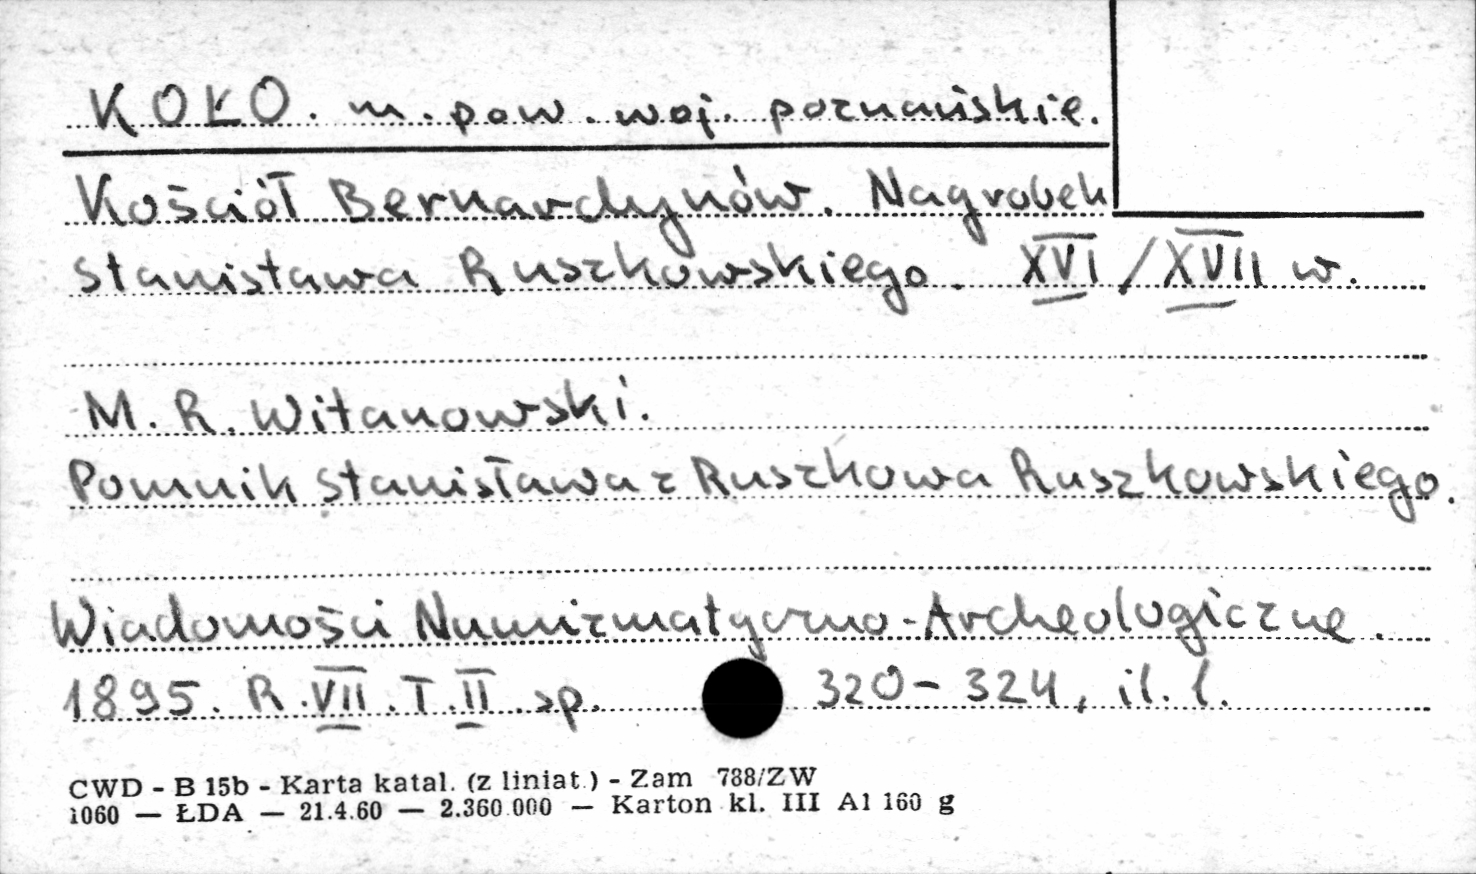 KOŁO. m. pow. woj. poznańskie.
Kościół Bernardynów. Nagrobek
Stanisława Ruszkowskiego. XVI/XVII w.
M. R. Witanowski.
Pomnik Stanisława z Ruszkowa Ruszkowskiego.
Wiadomości Numizmatyczno-Archeologiczne.
1895. R. VII. T. II sp. 320-324, il. l.
CWD - B 15b - Karta katal. (z liniat.) - Zam 788/ZW
1060 — ŁDA — 21.4.60 — 2.360.000 — Karton kl. III A1 160 g